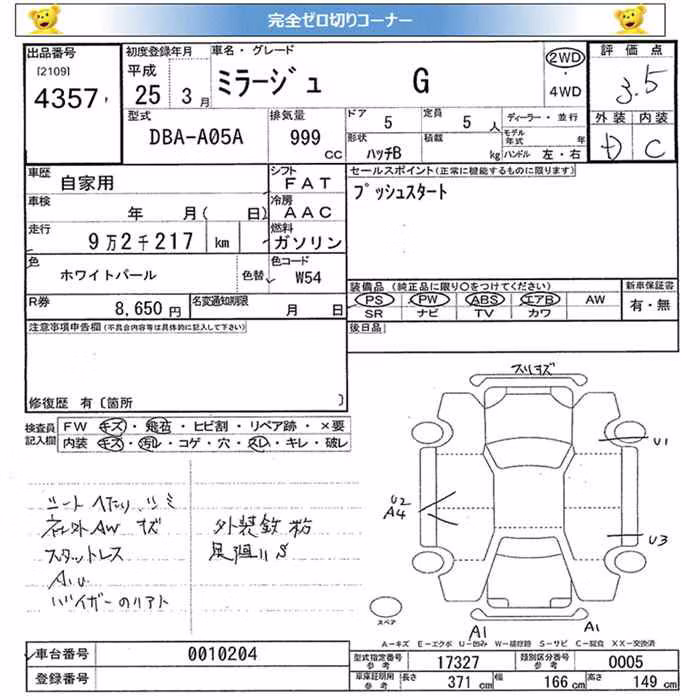 完全ゼロ切りコーナー
出品番号
[2109]
4357
初度登録年月
平成
25 3月
車名・グレード
ミラージュ G
2WD
・
4WD
評価点
3.5
外装 内装
D C
型式
DBA-A05A
排気量
999
CC
ドア
5
定員
5人
形状
ハッチB
積載
kg
ディーラー・並行
モデル年式 年
ハンドル 左・右
車歴
自家用
シフト
FAT
車検
年 月( 日)
冷房
AAC
走行
9万2千217 km
燃料
ガソリン
色
ホワイトパール
色替
色コード
W54
R券
8,650円
名変通知期限
月 日
セールスポイント(正常に機能するものに限ります)
プッシュスタート
装備品(純正品に限り○をつけてください)
PS PW ABS エアB AW
SR ナビ TV カワ
新車保証書
有・無
後日品
注意事項申告欄(不具合内容等は具体的に記入して下さい)
修復歴 有〔箇所 〕
検査員記入欄
FW キズ・飛石・ヒビ割・リペア跡・×要
内装 キズ・汚レ・コゲ・穴・スレ・キレ・破レ
シートヘたり、シミ
社外AW キズ
スタットレス
A.U
バイザーのリアト
外装鈑粉
足廻りS
スリキズ
U1
U2
A4
U3
A1
A1
スペア
A-キズ E-エクボ U-凹み W-補修跡 S-サビ C-腐食 XX-交換済
車台番号
0010204
登録番号
型式指定番号
参考
17327
類別区分番号
参考
0005
車庫証明用
参考
長さ 371cm
幅 166cm
高さ 149cm